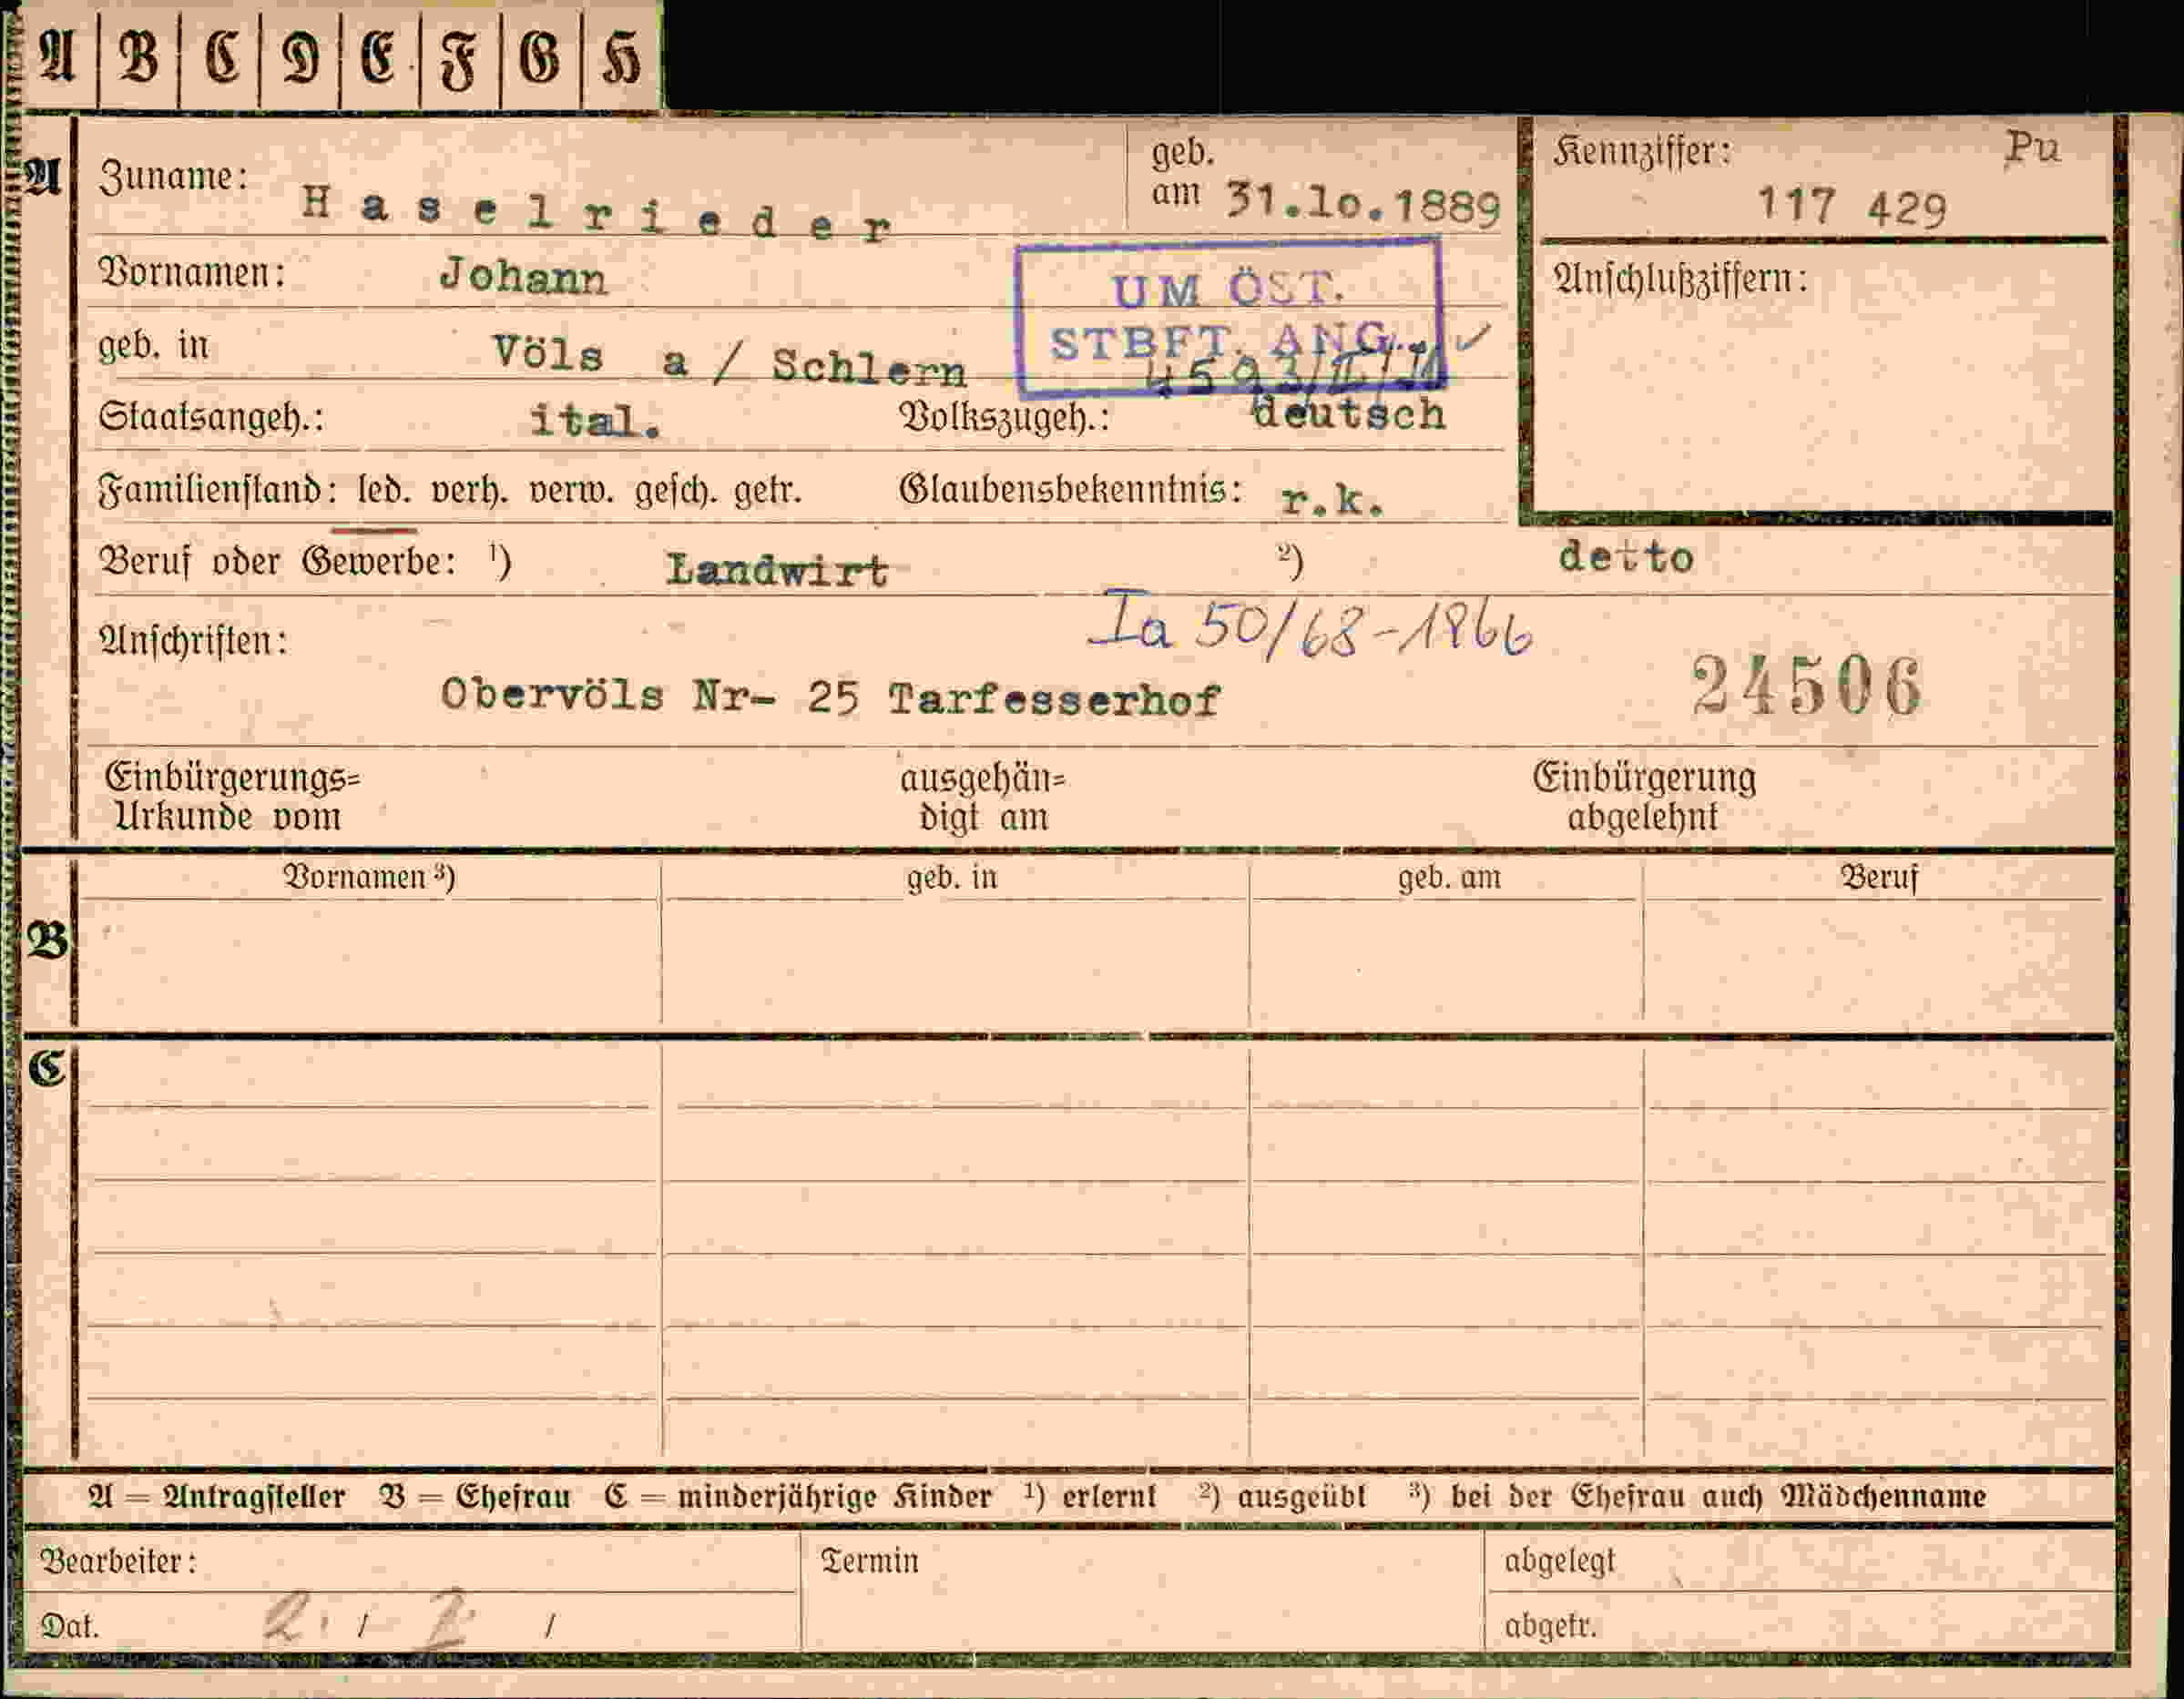 A B C D E F G H
A Zuname: Haselrieder geb. am 31.1o.1889 Kennziffer: Pu 117 429
Vornamen: Johann UM ÖST. Anschlußziffern:
geb. in Völs a / Schlern STBFT. ANG.
Staatsangeh.: ital. Volkszugeh.: deutsch
Familienstand: led. verh. verw. gesch. getr. Glaubensbekenntnis: r.k.
Beruf oder Gewerbe: ¹) Landwirt ²) detto
Ia 50/68-1966
Anschriften:
Obervöls Nr- 25 Tarfesserhof 24506
Einbürgerungs= ausgehän= Einbürgerung
Urkunde vom digt am abgelehnt
Vornamen ³) geb. in geb. am Beruf
B
C
A = Antragsteller B = Ehefrau C = minderjährige Kinder ¹) erlernt ²) ausgeübt ³) bei der Ehefrau auch Mädchenname
Bearbeiter: Termin abgelegt
Dat. / / abgetr.